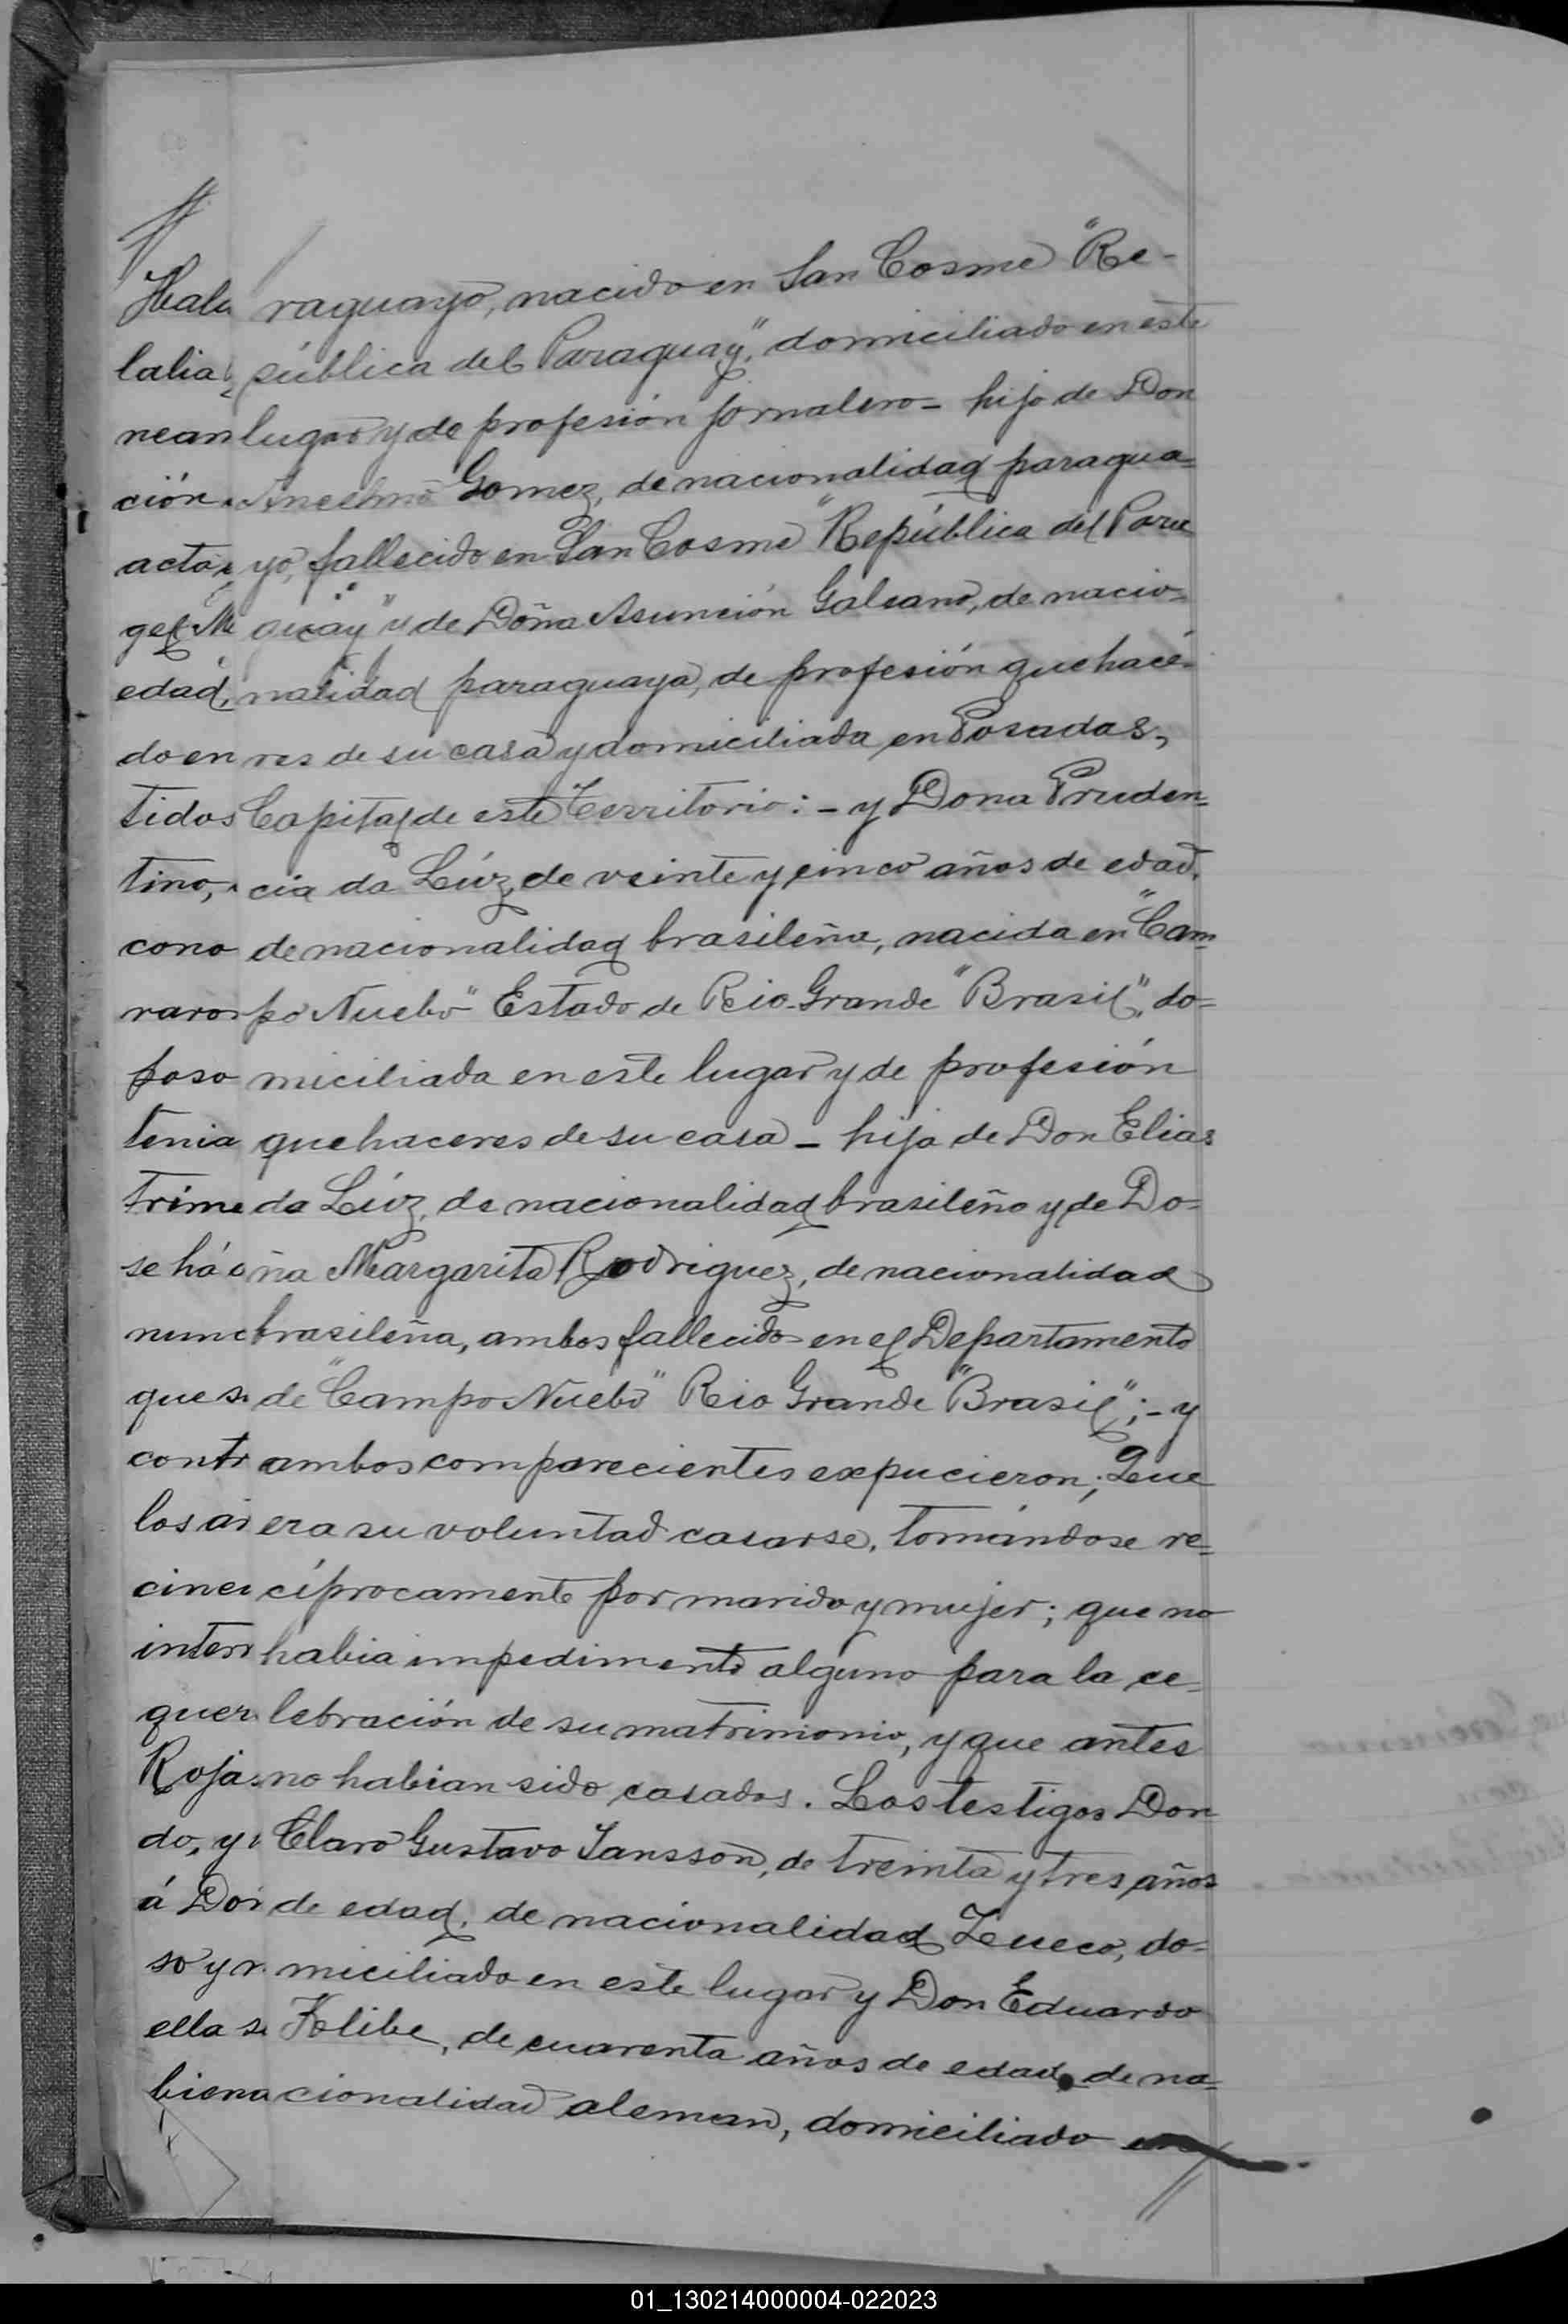 raguayo, nacido en San Cosme "Re-
pública del Paraguay", domiciliado en este
lugar y de profesión jornalero - hijo de Don
Anselmo Gomez, de nacionalidad paragua=
yo, fallecido en San Cosme "República del Para
guay" y de Doña Asunción Galeano, de nacio=
nalidad paraguaya, de profesión quehace-
res de su casa y domiciliada en Posadas,
Capital de este Territorio: - y Dona Pruden=
cia da Lúz, de veinte y cinco años de edad,
de nacionalidad brasileña, nacida en "Cam=
po Nuebo" Estado de Rio-Grande "Brasil", do=
miciliada en este lugar y de profesión
quehaceres de su casa - hija de Don Elias
da Lúz, de nacionalidad brasileño y de Do=
ña Margarita Rodriguez, de nacionalidad
brasileña, ambos fallecido en el Departamento
de "Campo Nuebo" Rio Grande "Brasil"; - y
ambos comparecientes expucieron; Que
era su voluntad casarse, tomándose re=
cíprocamente por marido y mujer; que no
habia impedimento alguno para la ce-
lebración de su matrimonio, y que antes
no habian sido casados. Los testigos Don
Claro Gustavo Jansson, de treinta y tres años
de edad, de nacionalidad Zueco, do=
miciliado en este lugar y Don Eduardo
Klibe, de cuarenta años de edad, de na=
cionalidad aleman, domiciliado en
Hala
lalia
nean
ción
acta
gel M
edad,
do en
tidos
tino,
cono
raron
poso
tenia
trimo
se há
num
que s
contr
los ai
cinc
inter
quer
Roja
do, y
á Don
so y
ella s
bien
01_130214000004-022023